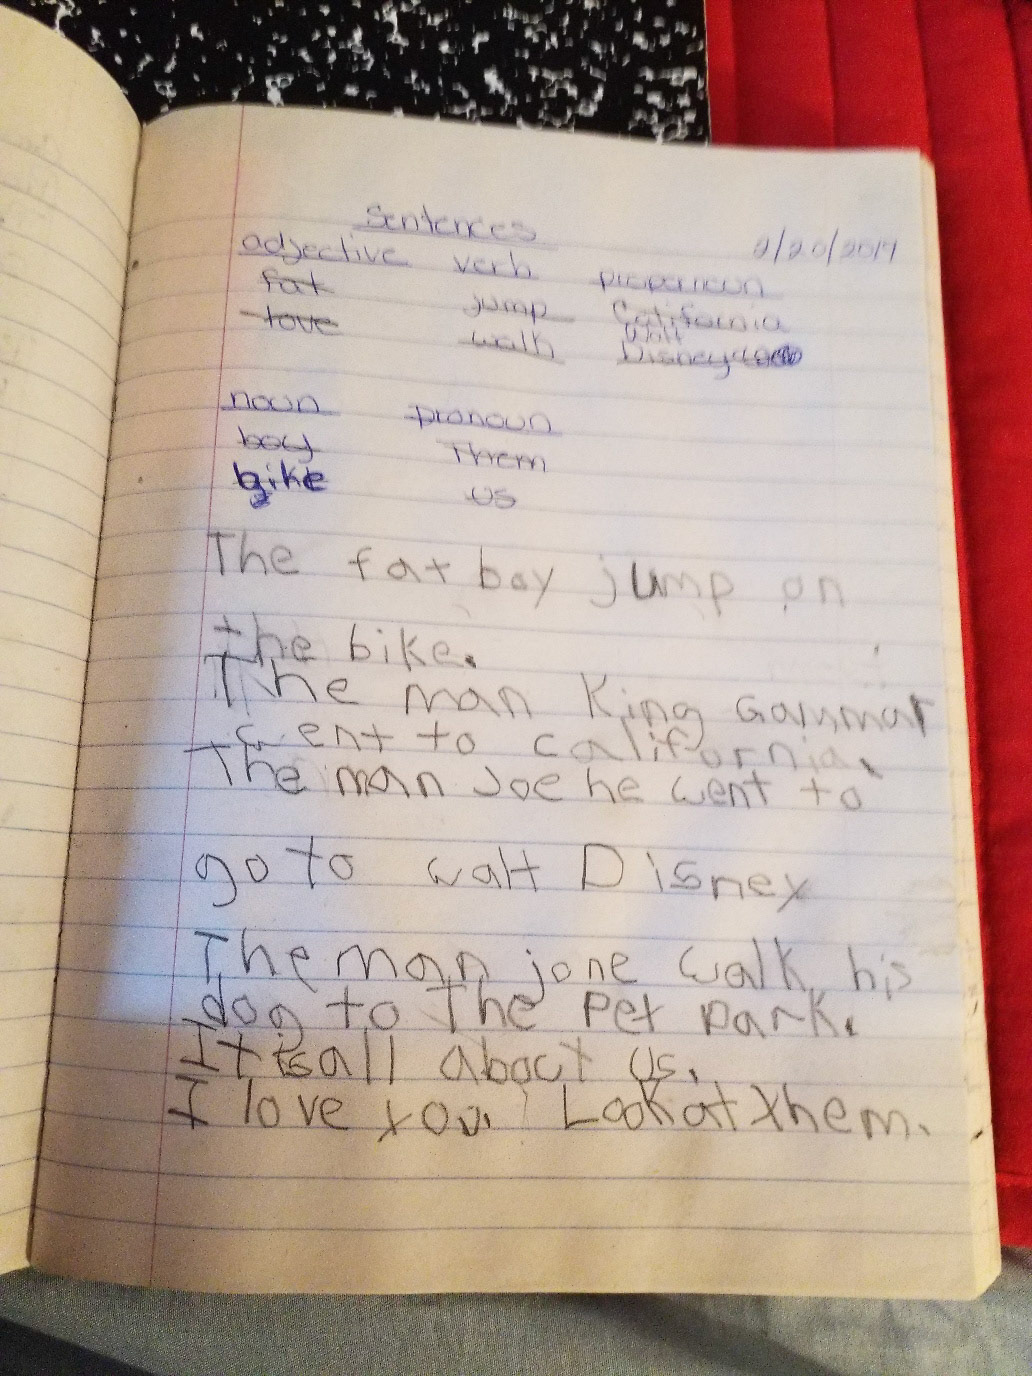 Sentences
2/20/2019
adjective verb propernoun
fat jump California
love walk Walt
Disney
noun pronoun
boy Them
bike us
The fat boy jump on
the bike.
The man King Gammar
went to california.
The man Joe he went to
go to walt Disney
The man jone walk his
dog to The Pet park.
It is all about us.
I love you. Look at them.